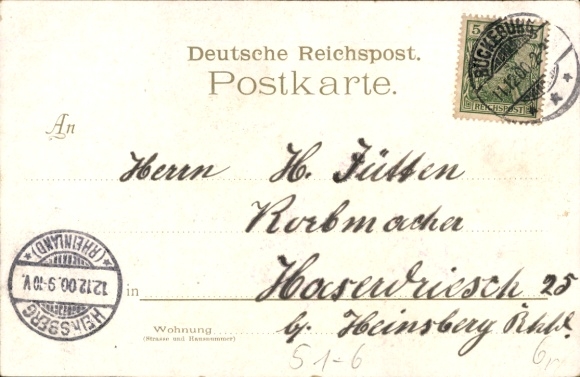 Deutsche Reichspost.
Postkarte.
5
REICHSPOST
BÜCKEBURG
11.12.00.
An
Herrn H. Jütten
Korbmacher
in Haserdriesch 25
Wohnung
(Strasse und Hausnummer)
b/ Heinsberg Rhld.
HEINSBERG
12.12.00.9-10V.
*(RHEINLAND)*
51-6